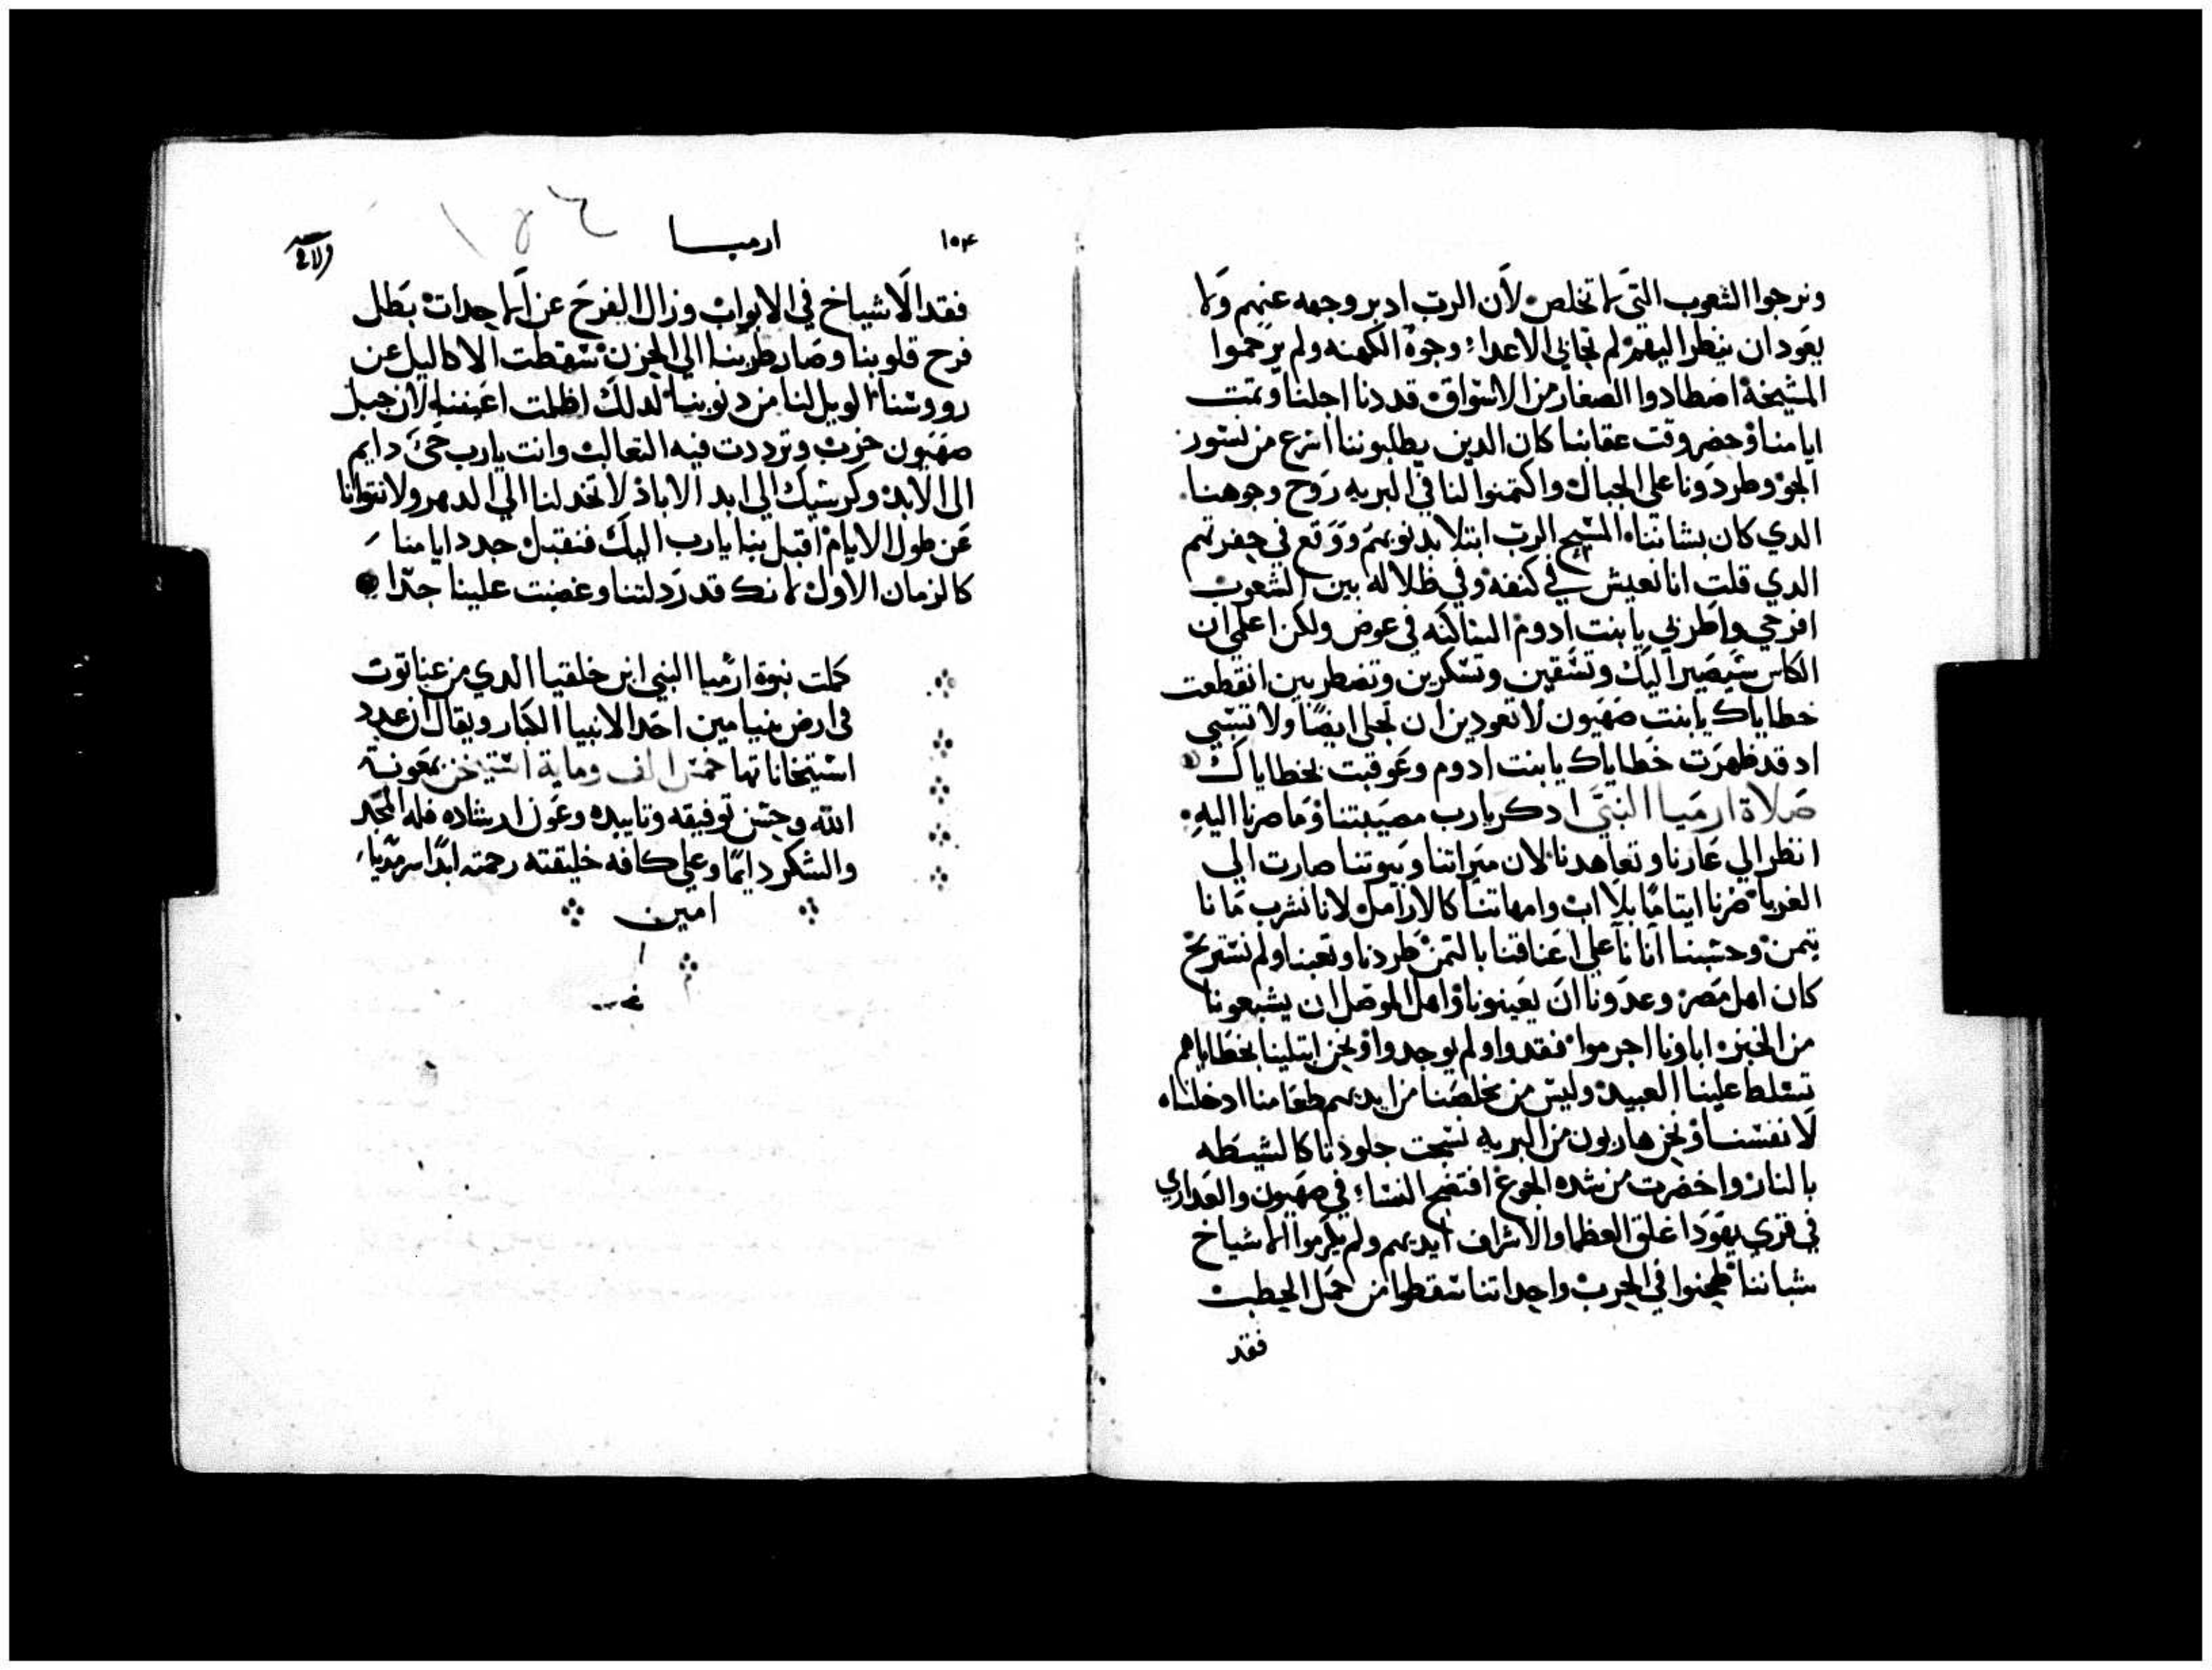 ونرجوا الشعوب التي لا تخلص لان الرب ادبر وجهه عنهم ولا
يعود ان ينظر اليهم لم تحابي الاعداء وجوه الكهنه ولم يرحموا
المشيخة اصطادوا الصغار من الاسواق قد دنا اجلنا وتمت
ايامنا وحضر وقت عقابنا كان الدين يطلبوننا اسرع من نسور
الجو وطردونا علي الجبال واكتمنوا لنا في البريه روح وجوهنا
الدي كان بشاننا المسيح الرب ابتلا بدنوبهم ووقع في حفرتهم
الدي قلت انا نعيش في كنفه وفي ظلاله بين الشعوب
افرحي واطربي يا بنت ادوم الساكنه في عوض ولكن اعلمي ان
الكاس سيصير اليك وتسقين وتسكرين وتضطربين انقطعت
خطاياك يا بنت صهيون لا تعودين ان تجلي ايضا ولا تسبي
اد قد ظهرت خطاياك يا بنت ادوم وعوقبت بخطاياك
صلاة ارميا النبي ادكر يارب مصيبتنا وما صرنا اليه
انظر الي عارنا وتعاهدنا لان ميراتنا وبيوتنا صارت الي
الغربا صرنا ايتاما بلا اب وامهاتنا كالارامل لانا نشرب مانا
بتمن وحسبنا اتانا علي اعناقنا بالتمن طردنا وتعبنا ولم نستريح
كان اهل مصر وعدونا ان يعينونا واهل الموصل ان يشبعونا
من الخبز اباونا اجرموا ففقدوا ولم يوجدوا ونحن ابتلينا بخطاياهم
تسلط علينا العبيد وليس من يخلصنا من ايديهم طعامنا ادخلناه
لانفسنا ونحن هاربون من البريه نسجت جلودنا كالشيطه
بالنار واخضرت من شده الجوع افتضح النساء في صهيون والعداري
في قري يهودا غلق العظما والاشراف ايديهم ولم يكرموا الاشياخ
شباننا طحنوا في الحرب واحداتنا سقطوا من حمل الحطب
فقد
١٥٤
ارميا
فقد الاشياخ في الابواب وزال الفرح عن الاحدات بطل
فرح قلوبنا وصار طربنا الي الحزن سقطت الاكاليل عن
رووسنا الويل لنا من دنوبنا لدلك اظلمت اعيننا لان جبل
صهيون خرب وترددت فيه التعالب وانت يارب حي دايم
الي الابد وكرسيك الي ابد الاباد لا تخدلنا الي الدهر ولا تتوانا
عن طول الايام اقبل بنا يارب اليك فنقبل جدد ايامنا
كالزمان الاول لانك قد رذلتنا وغضبت علينا جدا
كملت نبوة ارميا النبي ابن خلقيا الدي من عناتوت
في ارض بنيامين احد الانبيا الكبار ويقال ان عدد
استيخاناتها خمس الف وماية استيخن بمعونة
الله وحسن توفيقه وتاييده وعون ارشاده فله المجد
والشكر دايما وعلي كافه خليقته رحمته ابدا سرمديا
امين